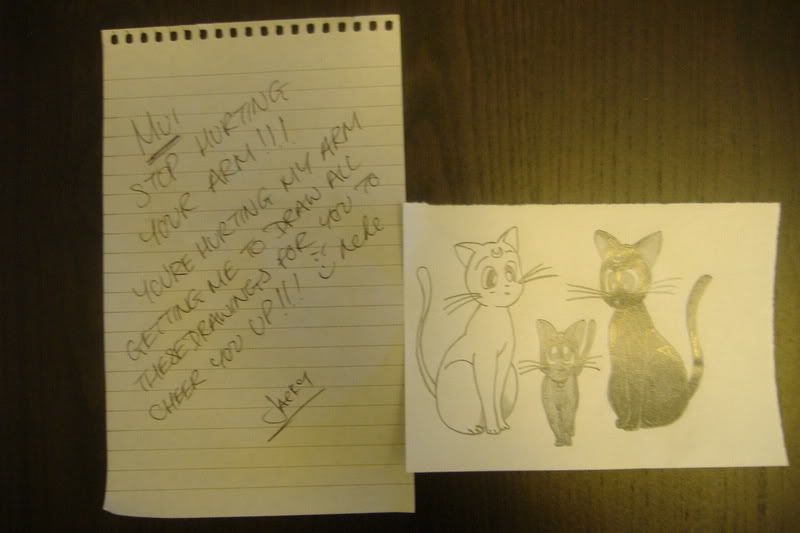 MUI
STOP HURTING
YOUR ARM!!!
YOURE HURTING MY ARM
GETTING ME TO DRAW ALL
THESE DRAWINGS FOR YOU TO
CHEER YOU UP!!! :) hehe